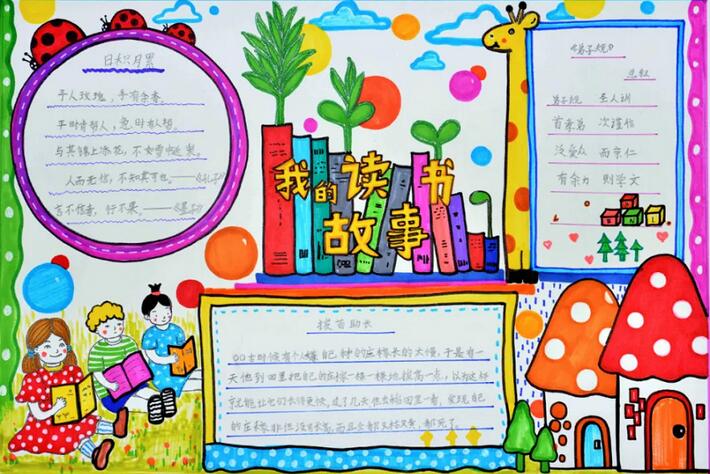 日积月累
予人玫瑰，手有余香。
平时肯帮人，急时有人帮。
与其锦上添花，不如雪中送炭。
人而无信，不知其可也。——《论语》
言不信者，行不果。——《墨子》
我的读书
故事
《弟子规》
总叙
弟子规 圣人训
首孝弟 次谨信
泛爱众 而亲仁
有余力 则学文
拔苗助长
古时候有个人嫌自己种的庄稼长的太慢，于是有一
天他到田里把自己的庄稼一棵一棵地拔高一点，以为这样
就能让它们长得更快，过了几天他去稻田里一看，发现自己
的庄稼非但没长高，而且全都又枯又黄，都死了。